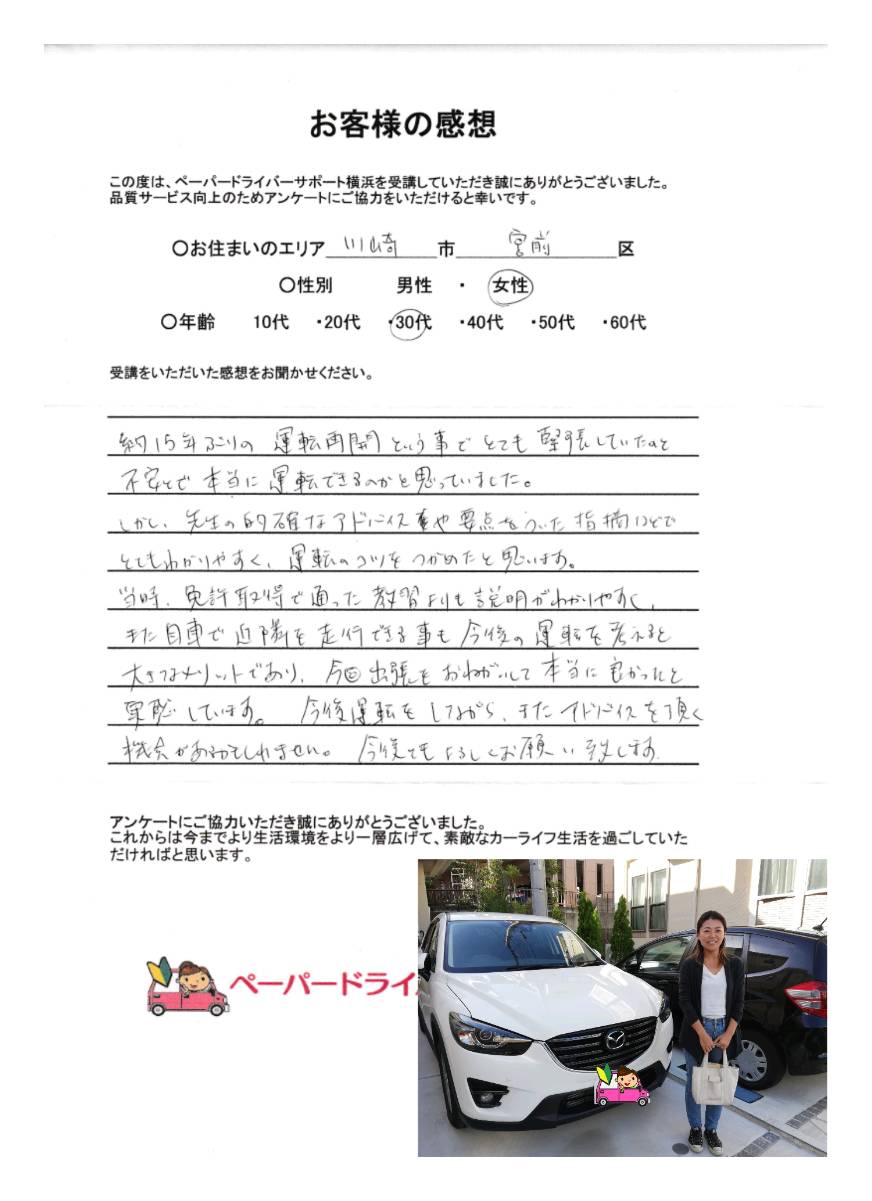 お客様の感想
この度は、ペーパードライバーサポート横浜を受講していただき誠にありがとうございました。
品質サービス向上のためアンケートにご協力をいただけると幸いです。
〇お住まいのエリア 川崎 市 宮前 区
〇性別 男性 ・ 女性
〇年齢 10代 ・20代 ・30代 ・40代 ・50代 ・60代
受講をいただいた感想をお聞かせください。
約15年ぶりの運転再開という事でとても緊張していたのと
不安とで本当に運転できるのかと思っていました。
しかし、先生の的確なアドバイスや要点をついた指摘などで
とてもわかりやすく、運転のコツをつかめたと思います。
当時、免許取得で通った教習よりも説明がわかりやすく、
また自車で近隣を走行できる事も今後の運転を考えると
大きなメリットであり、今回出張をおねがいして本当に良かったと
実感しています。 今後運転をしながら、またアドバイスを頂く
機会があるかもしれません。 今後ともよろしくお願い致します
アンケートにご協力いただき誠にありがとうございました。
これからは今までより生活環境をより一層広げて、素敵なカーライフ生活を過ごしていた
だければと思います。
ペーパードライ